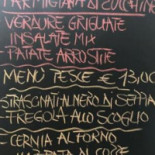 PARMIGIANA DI ZUCCHINE
- VERDURE GRIGLIATE
- INSALATE MIX
- PATATE ARROSITE
MENÙ PESCE € 13,00
- STRASCINATI AL NERO DI SEPPIA
- TREGOLA ALLO SCOGLIO
- CERNIA AL FORNO